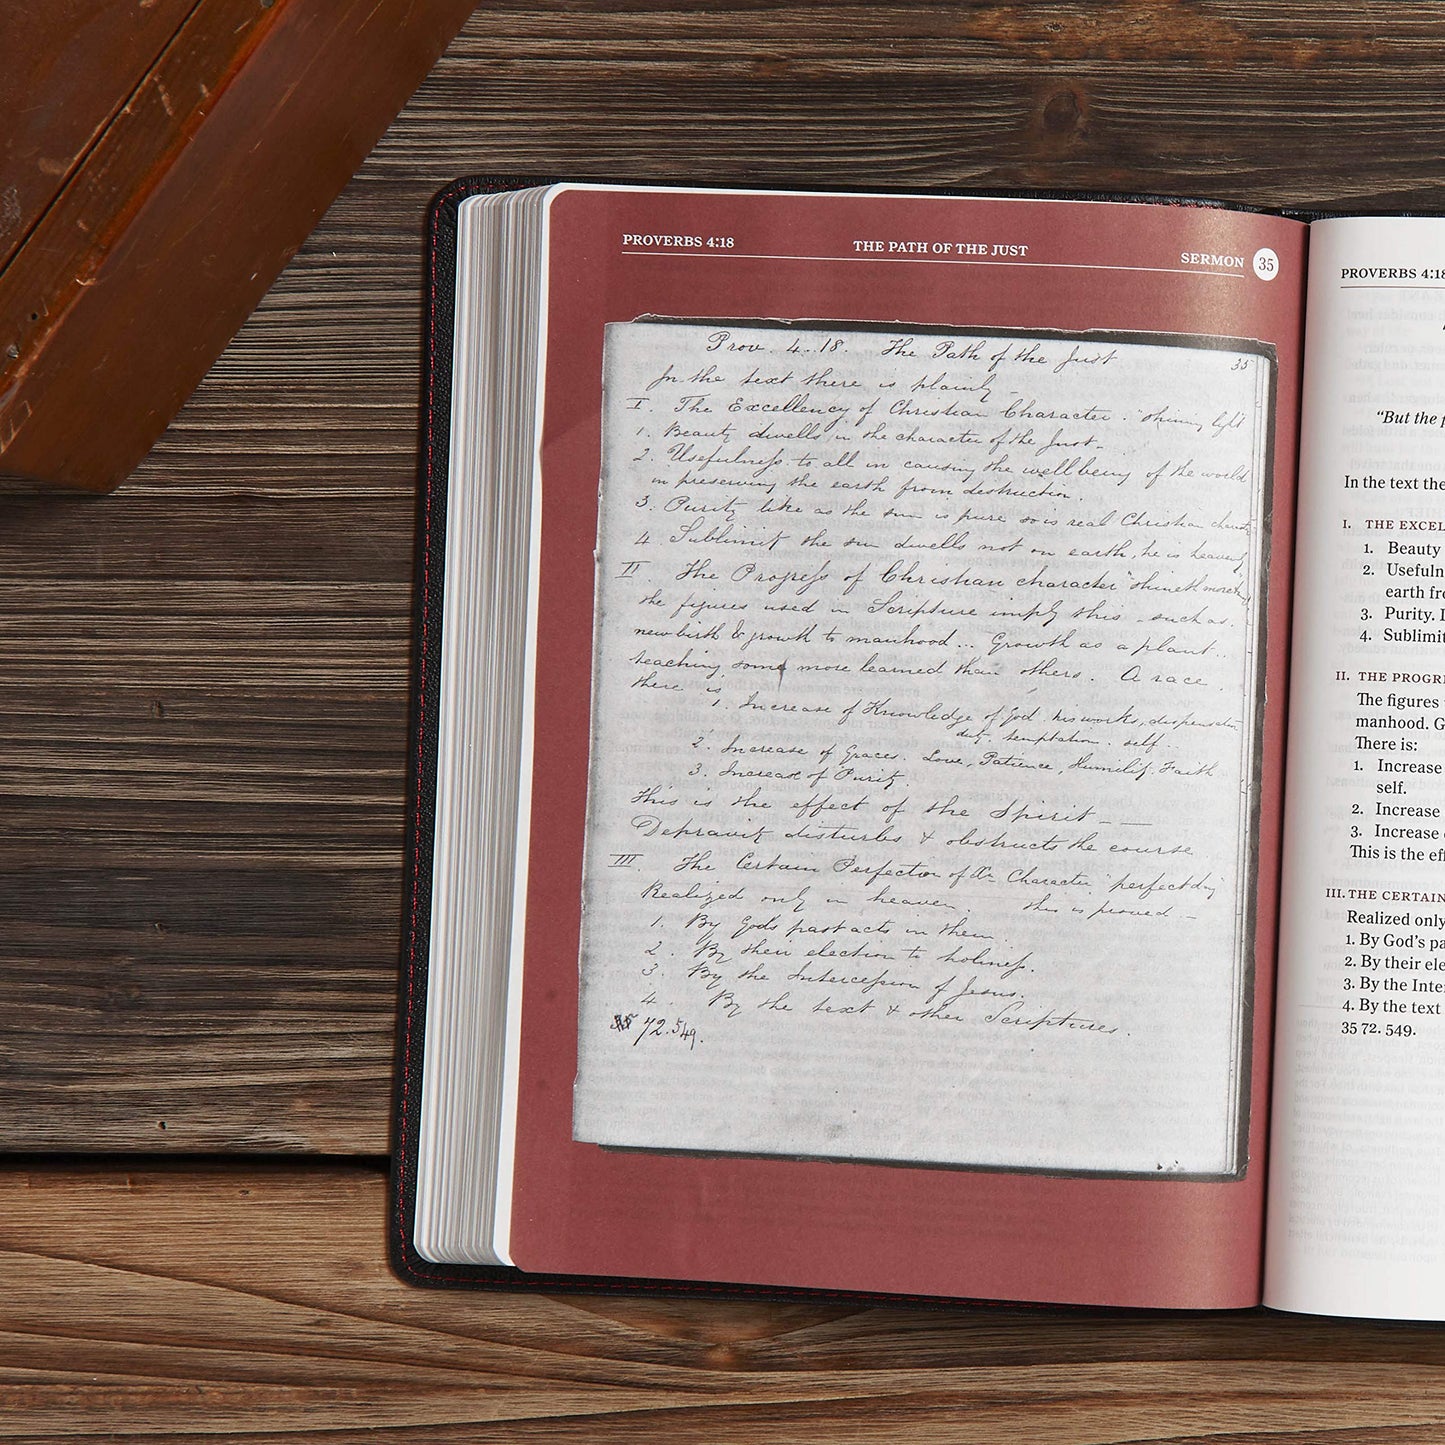 PROVERBS 4:18 THE PATH OF THE JUST SERMON 35
Prov. 4..18. The Path of the Just 35
In the text there is plainly –
I. The Excellency of Christian Character. "shining light
1. Beauty dwells in the character of the Just –
2. Usefulness. to all in causing the well being of the world
in preserving the earth from destruction.
3. Purity like as the sun is pure so is real Christian
4. Sublimity the sun dwells not on earth, he is heavenly
II. The Progress of Christian character "shineth more
the figures used in Scripture imply this – such as.
new birth & growth to manhood... Growth as a plant..
teaching some more learned than others. A race.
there is
1. Increase of Knowledge of God. his works, dispensation
duty. temptation. self...
2. Increase of Graces. Love, Patience, Humility. Faith
3. Increase of Purity.
This is the effect of the Spirit – –
Depravity disturbs & obstructs the course.
III. The Certain Perfection of Xn Character "perfect day"
Realized only in heaven. this is proved –
1. By Gods past acts in them.
2. By their election to holiness.
3. By the Intercession of Jesus.
4. By the text & other Scriptures.
72.549.
PROVERBS 4:18
"But the
In the text the
I. THE EXCEL
1. Beauty
2. Usefuln
earth fr
3. Purity.
4. Sublimit
II. THE PROGR
The figures
manhood. G
There is:
1. Increase
self.
2. Increase
3. Increase
This is the ef
III. THE CERTAIN
Realized only
1. By God's pa
2. By their ele
3. By the Inter
4. By the text
35 72. 549.